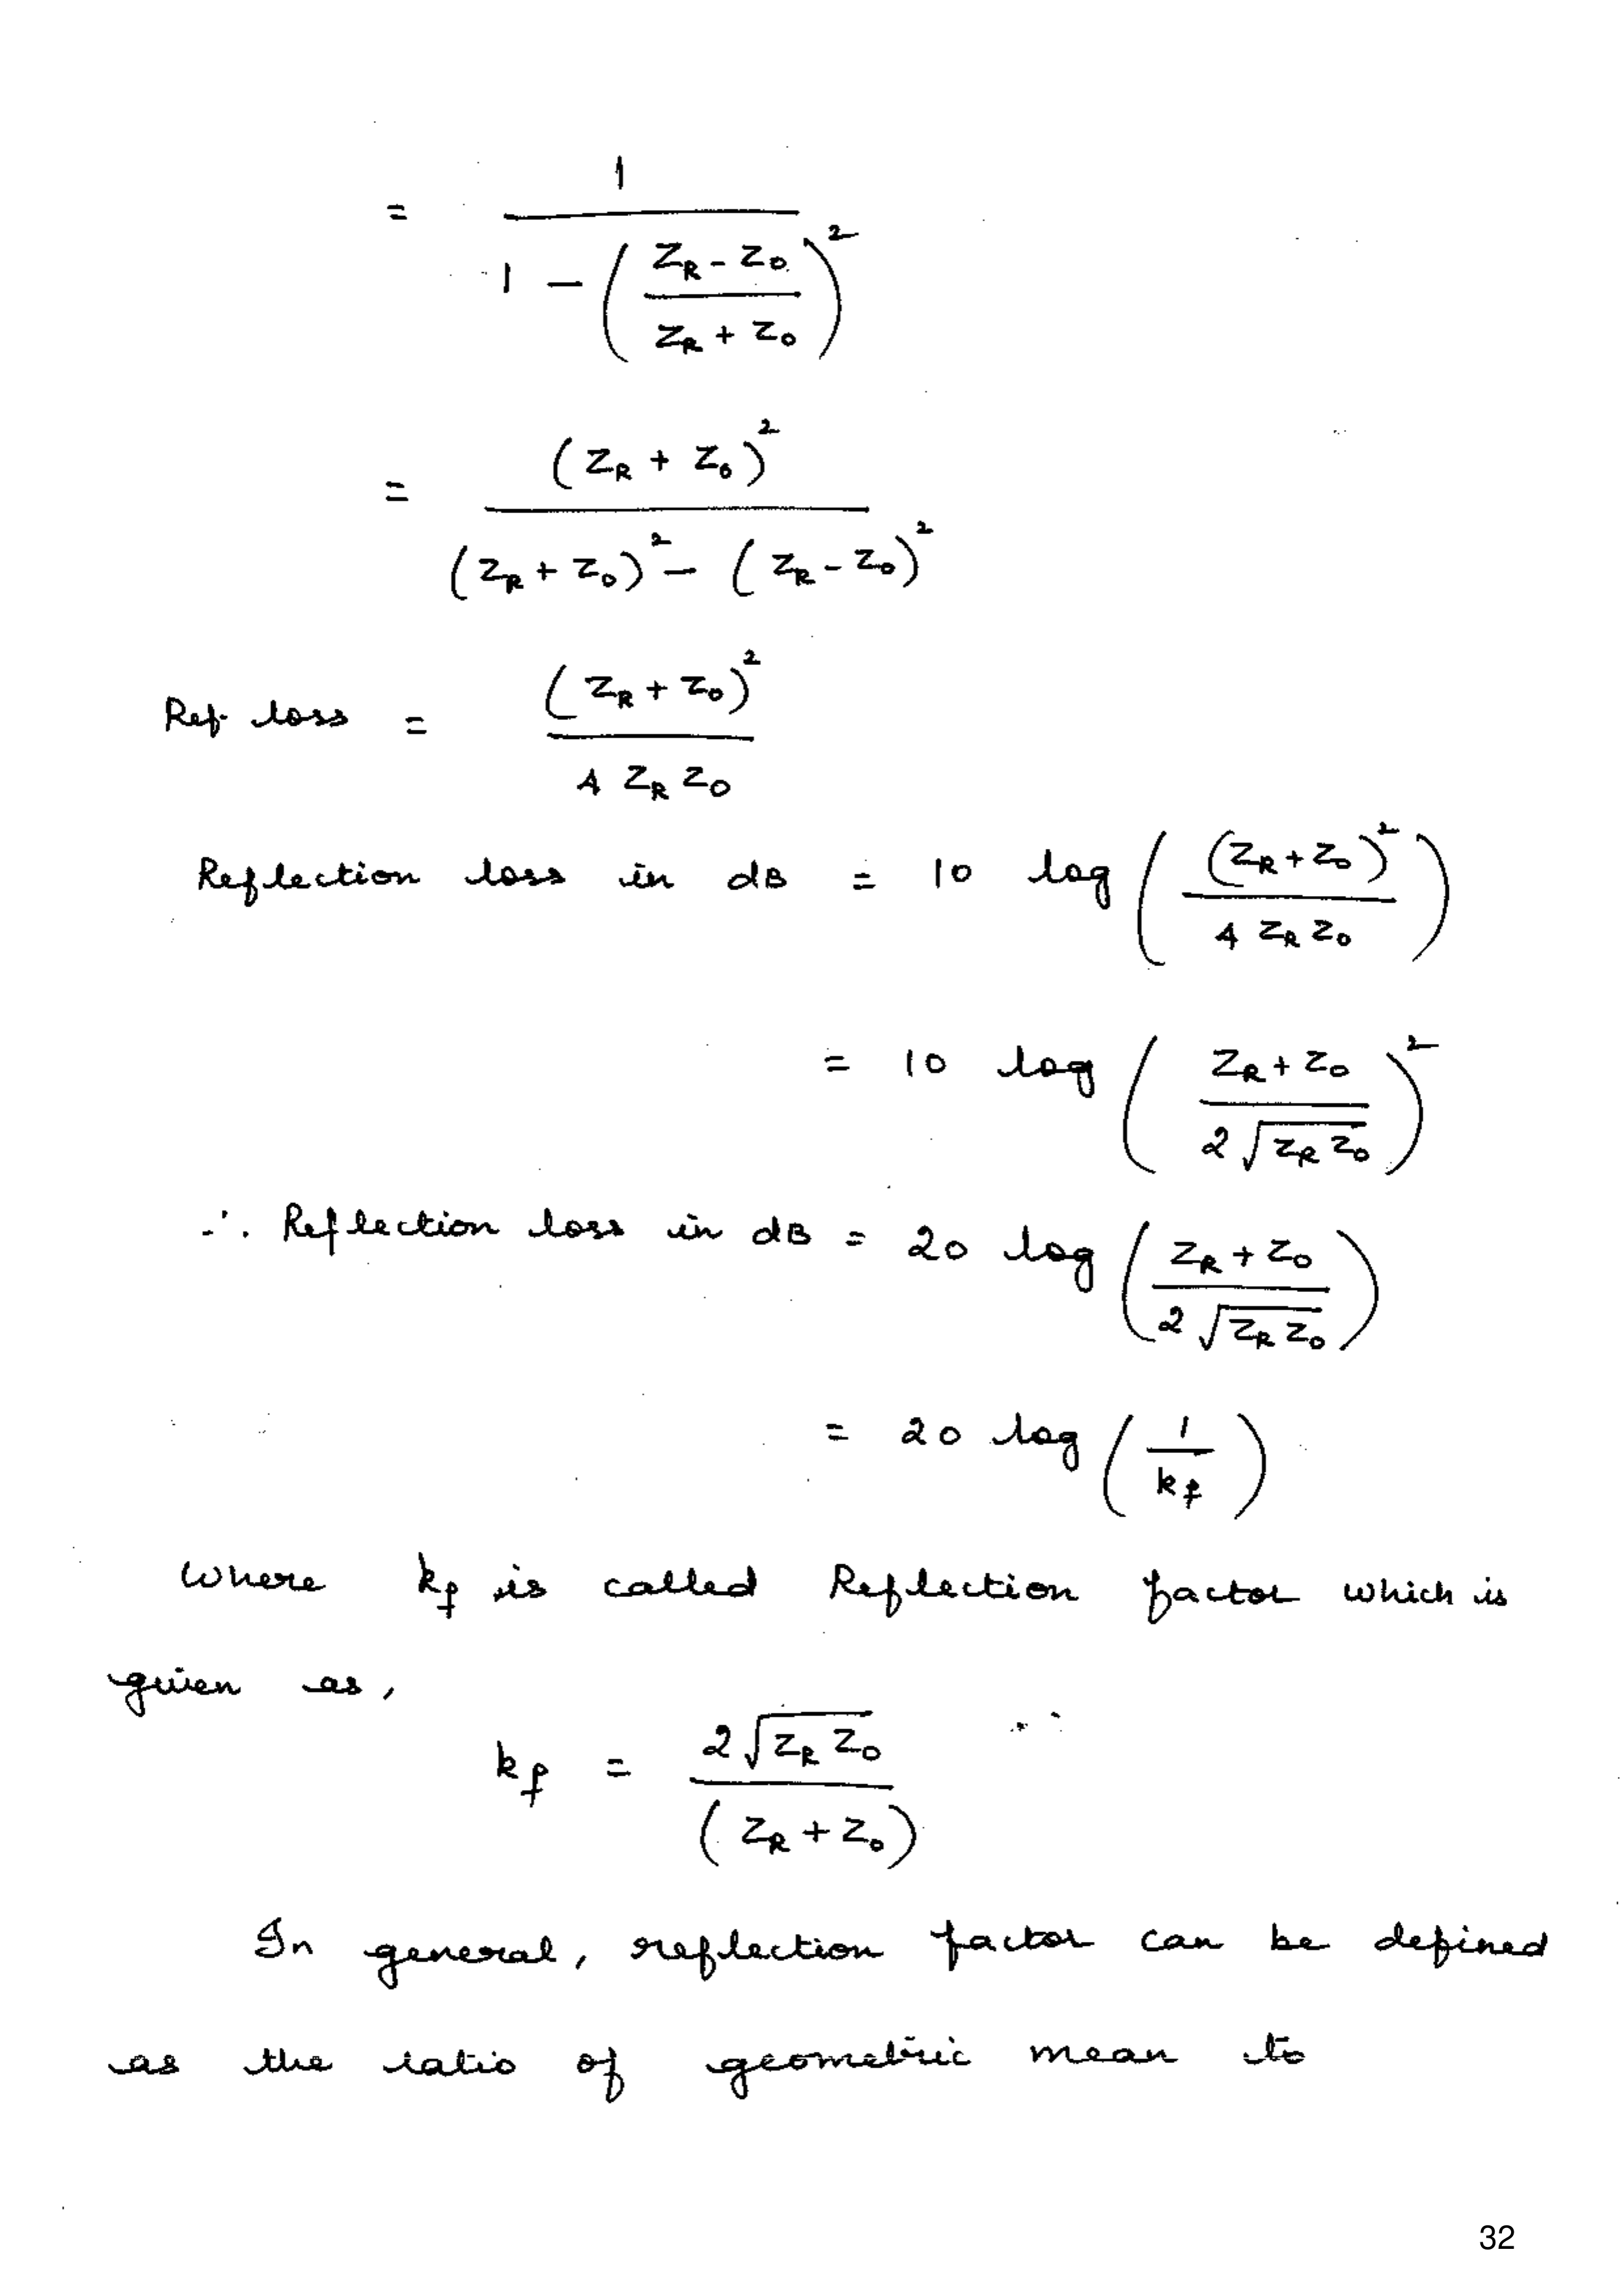 = 1 / (1 - ((Z_R - Z_0) / (Z_R + Z_0))^2)
= (Z_R + Z_0)^2 / ((Z_R + Z_0)^2 - (Z_R - Z_0)^2)
Ref. loss = (Z_R + Z_0)^2 / (4 Z_R Z_0)
Reflection loss in dB = 10 log ((Z_R + Z_0)^2 / (4 Z_R Z_0))
= 10 log ((Z_R + Z_0) / (2 √(Z_R Z_0)))^2
∴ Reflection loss in dB = 20 log ((Z_R + Z_0) / (2 √(Z_R Z_0)))
= 20 log (1 / k_f)
Where k_f is called Reflection factor which is
given as,
k_f = 2 √(Z_R Z_0) / (Z_R + Z_0)
In general, reflection factor can be defined
as the ratio of geometric mean to
32